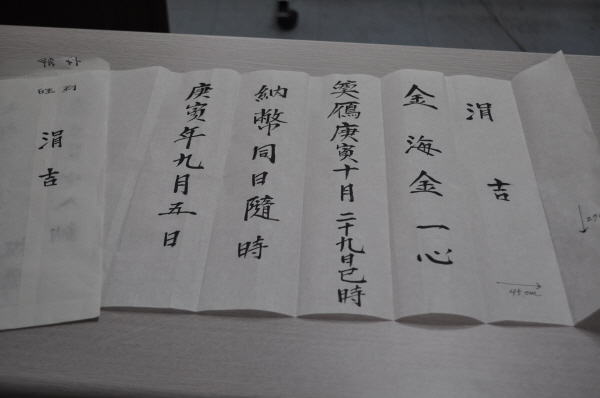 涓吉
金海金一心
奠鴈庚寅十月二十九日巳時
納幣同日隨時
庚寅年九月五日
涓吉
45 cm